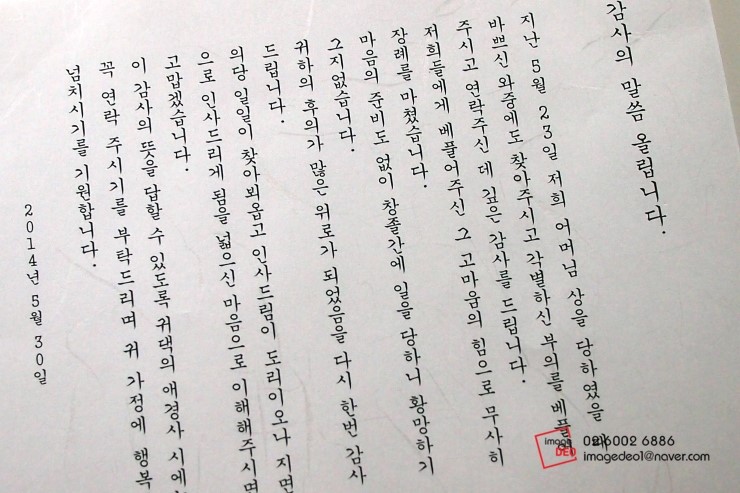 감사의 말씀 올립니다.
지난 5월 23일 저희 어머님 상을 당하였을 때
바쁘신 와중에도 찾아주시고 각별하신 부의를 베풀어
주시고 연락주신 데 깊은 감사를 드립니다.
저희들에게 베풀어주신 그 고마움의 힘으로 무사히
장례를 마쳤습니다.
마음의 준비도 없이 창졸간에 일을 당하니 황망하기
그지없습니다.
귀하의 후의가 많은 위로가 되었음을 다시 한번 감사
드립니다.
의당 일일이 찾아뵈옵고 인사드림이 도리이오나 지면
으로 인사드리게 됨을 넓으신 마음으로 이해해주시며
고맙겠습니다.
이 감사의 뜻을 답할 수 있도록 귀댁의 애경사 시에
꼭 연락 주시기를 부탁드리며 귀 가정에 행복
넘치시기를 기원합니다.
2014년 5월 30일
image DEO
02 6002 6886
imagedeo1@naver.com